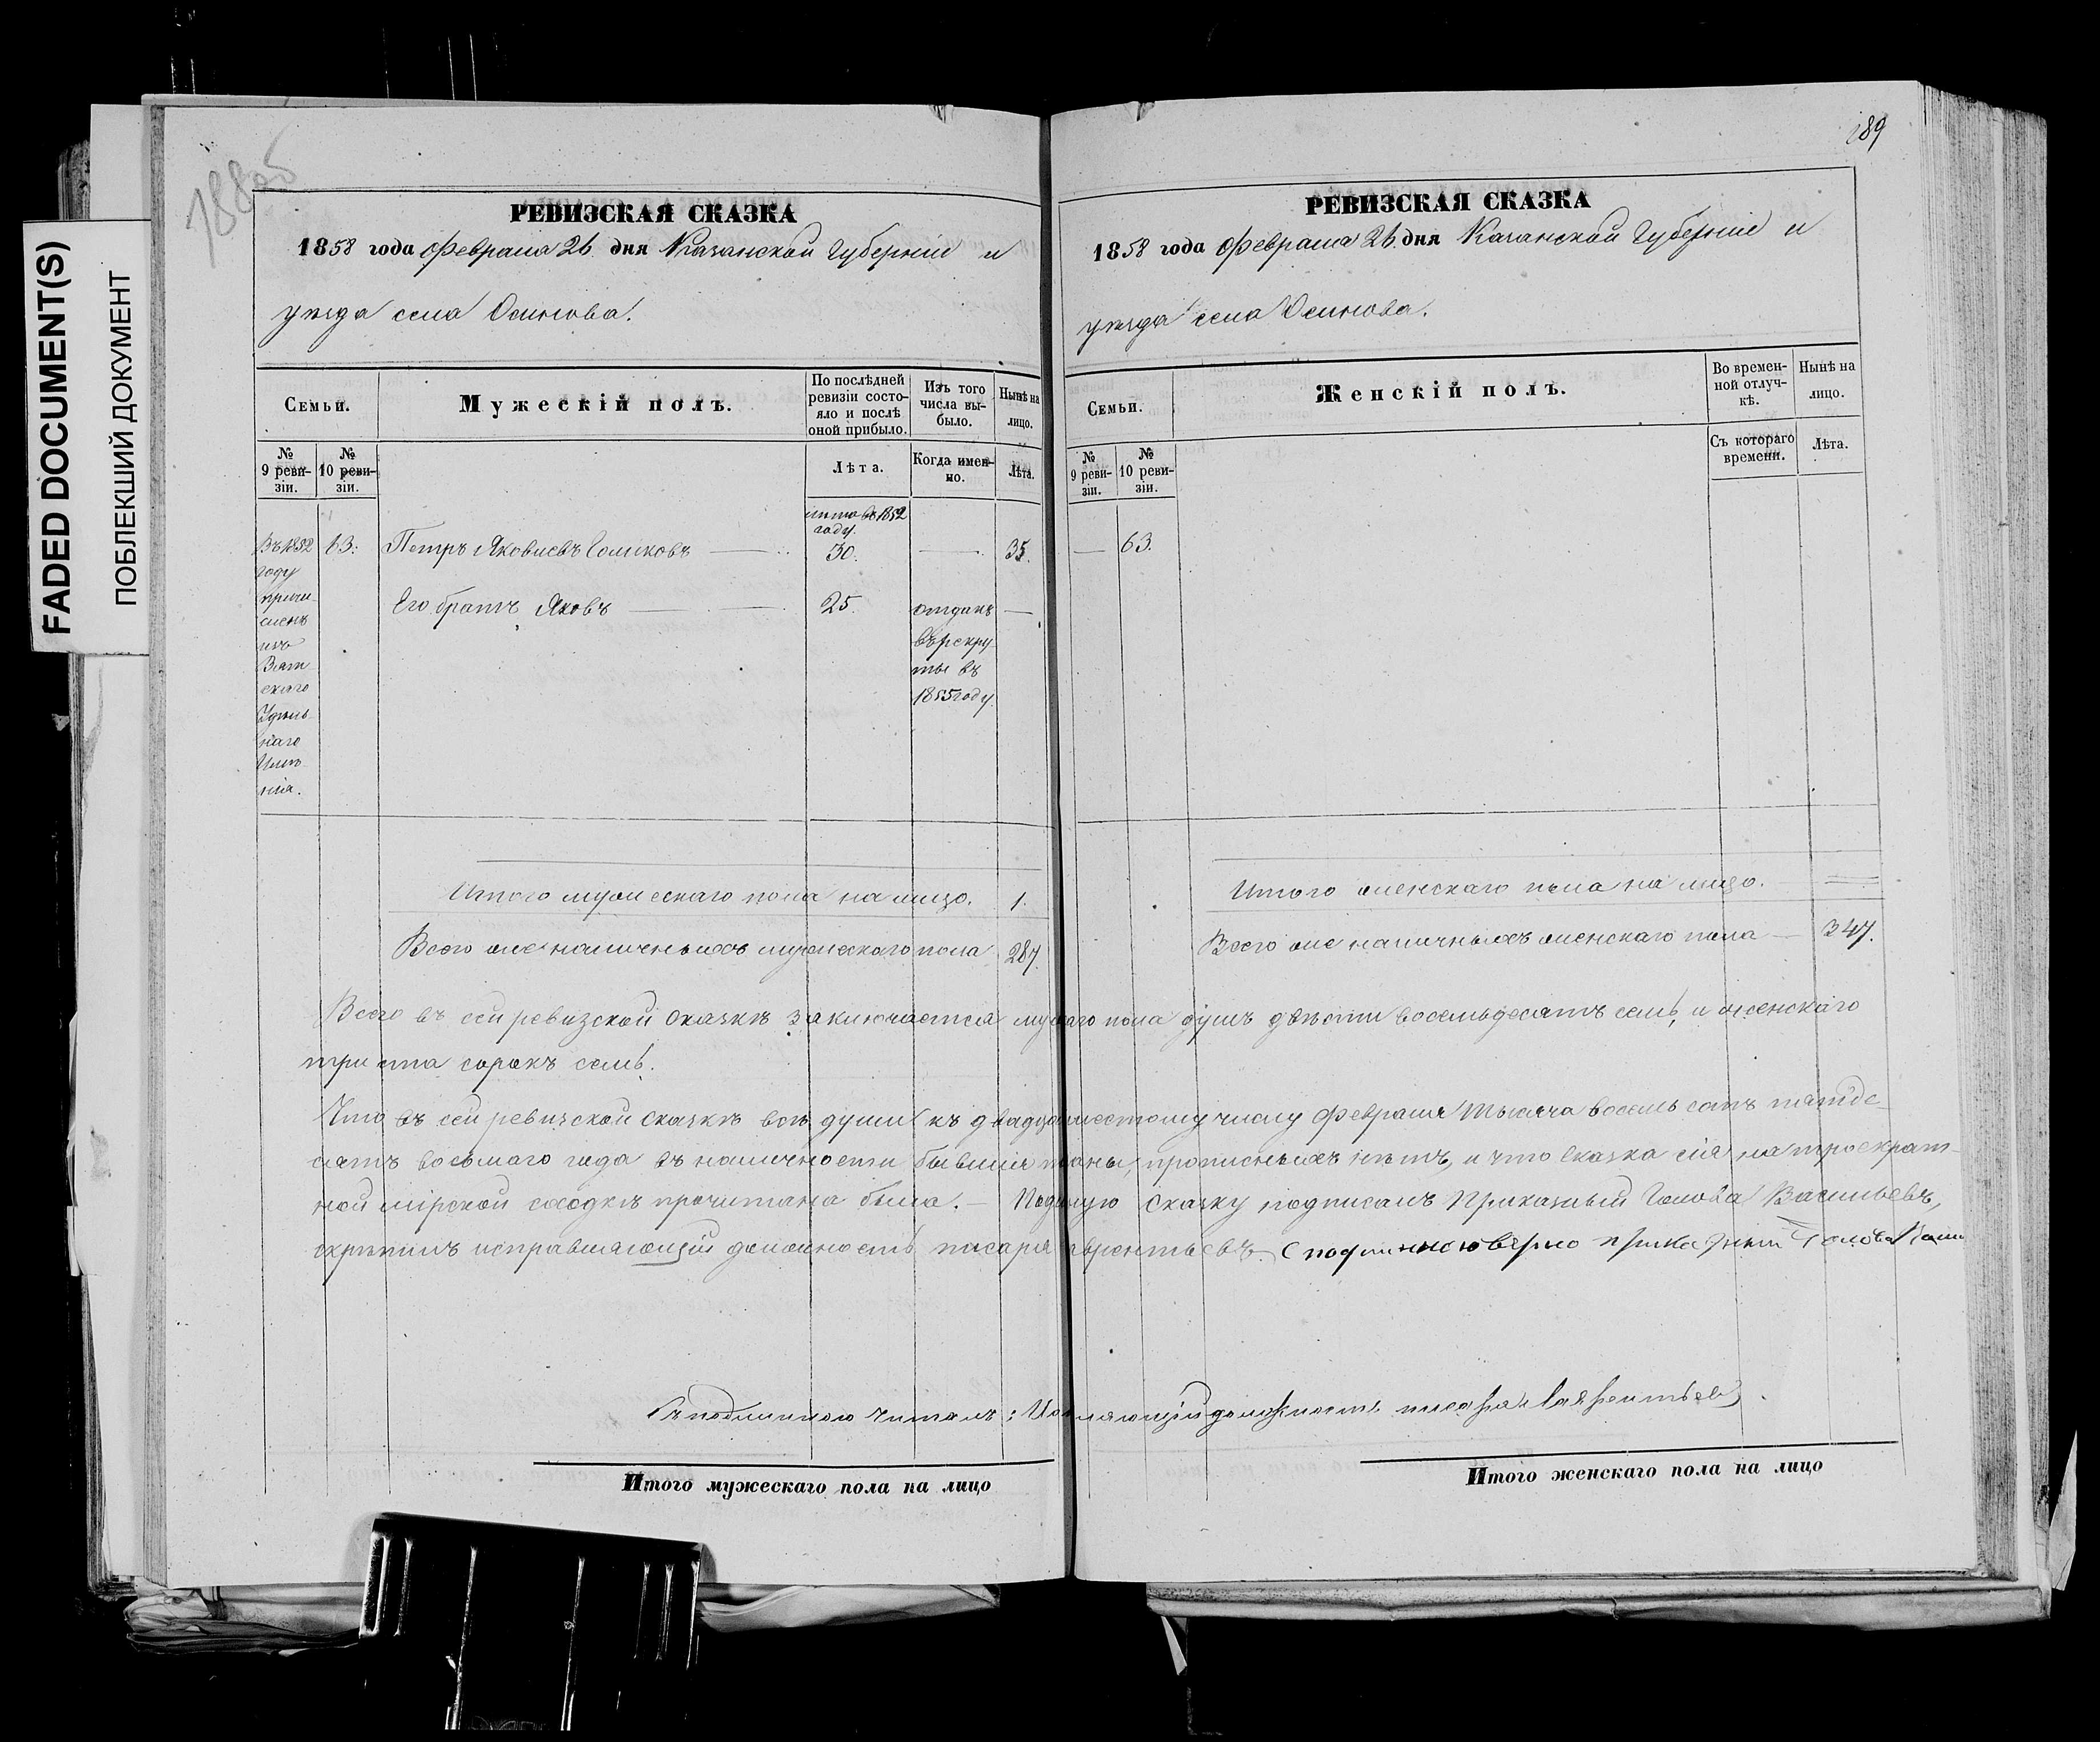 FADED DOCUMENT(S)
ПОБЛЕКШИЙ ДОКУМЕНТ
188об
РЕВИЗСКАЯ СКАЗКА
1858 года Февраля 26 дня Казанской Губерніи и
уѣзда села Осинова.
Семьи.
Мужескій полъ.
По послѣдней ревизіи состояло и послѣ оной прибыло.
Изъ того числа выбыло.
Нынѣ на лицо.
№ 9 ревизіи.
№ 10 ревизіи.
Лѣта.
Когда именно.
Лѣта.
Въ 1852 году причисленъ изъ Вятскаго Удѣльнаго Имѣнія.
63.
Петръ Яковлевъ Голиковъ
въ 1852 году.
30.
35.
Его братъ Яковъ
25.
отданъ въ рекруты въ 1855 году.
Итого мужескаго пола на лицо. 1.
Всего же наличныхъ мужескаго пола 287.
189
РЕВИЗСКАЯ СКАЗКА
1858 года Февраля 26 дня Казанской Губерніи и
уѣзда села Осинова.
Семьи.
Женскій полъ.
Во временной отлучкѣ.
Нынѣ на лицо.
№ 9 ревизіи.
№ 10 ревизіи.
Съ котораго времени.
Лѣта.
63.
Итого женскаго пола на лицо.
Всего же наличныхъ женскаго пола 347.
Всего въ сей ревизской сказкѣ заключается муаго пола душъ двѣсти восемьдесятъ семь, и женскаго
триста сорокъ семь.
Что въ сей ревизской сказкѣ всѣ души къ двадцашестому числу Февраля тысяча восемь сотъ пятьде-
сятъ восьмаго года въ наличности бывшія заны, прописныхъ нѣтъ, и что сказка сія на троекрат-
ной мірской сходкѣ прочитана была. — Подную сказку подписалъ Приказный Голова Васильевъ,
скрѣпилъ исправляющій должность писаря врентьевъ. Съ подлиннымъ вѣрно приказный Голова
Съ подлинною читалъ: Исляющій должность писаря Лаврентьевъ.
Итого мужескаго пола на лицо
Итого женскаго пола на лицо